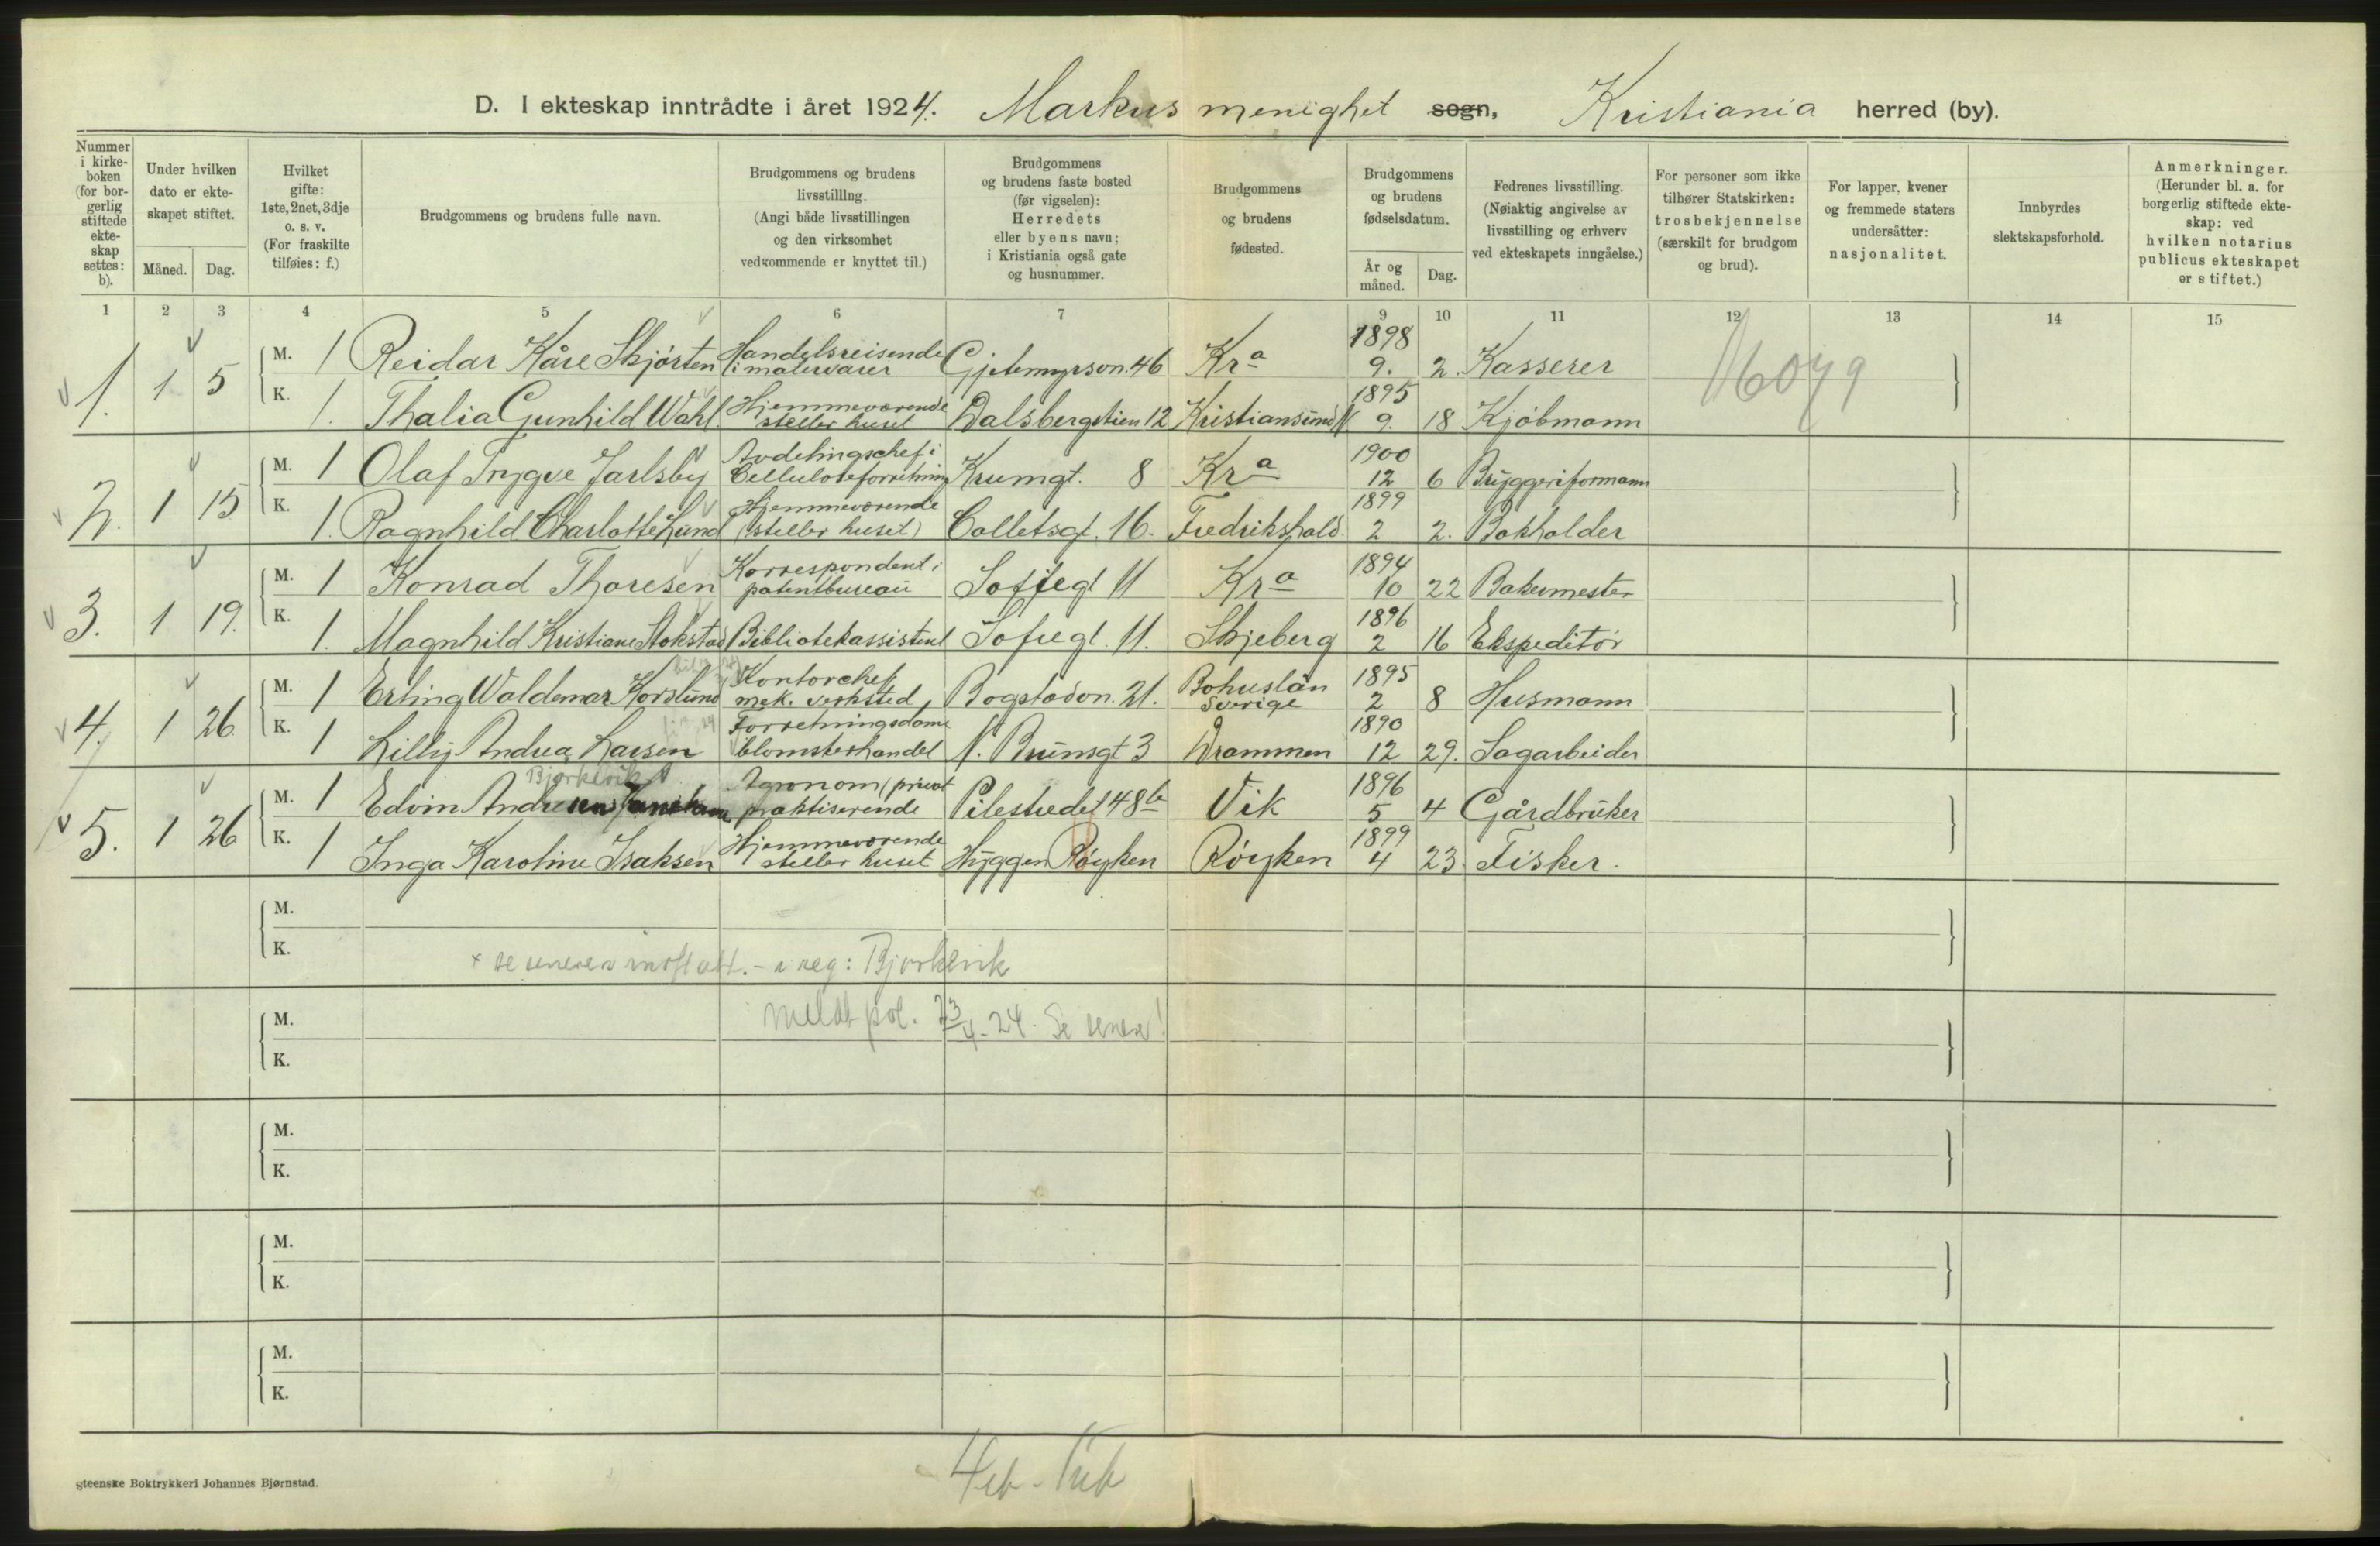 D. I ekteskap inntrådte i året 1924. Markus menighet sogn, Kristiania herred (by).
Nummer i kirkeboken (for borgerlig stiftede ekteskap settes: b).
Under hvilken dato er ekteskapet stiftet.
Måned. Dag.
Hvilket gifte: 1ste, 2net, 3dje o. s. v. (For fraskilte tilføies: f.)
Brudgommens og brudens fulle navn.
Brudgommens og brudens livsstilling. (Angi både livsstillingen og den virksomhet vedkommende er knyttet til.)
Brudgommens og brudens faste bosted (før vigselen): Herredets eller byens navn; i Kristiania også gate og husnummer.
Brudgommens og brudens fødested.
Brudgommens og brudens fødselsdatum.
År og måned. Dag.
Fedrenes livsstilling. (Nøiaktig angivelse av livsstilling og erhverv ved ekteskapets inngåelse.)
For personer som ikke tilhører Statskirken: trosbekjennelse (særskilt for brudgom og brud).
For lapper, kvener og fremmede staters undersåtter: nasjonalitet.
Innbyrdes slektskapsforhold.
Anmerkninger. (Herunder bl. a. for borgerlig stiftede ekteskap: ved hvilken notarius publicus ekteskapet er stiftet.)
1 2 3 4 5 6 7 8 9 10 11 12 13 14 15
1. 1 5 M. 1 Reidar Kåre Skjørten Handelsreisende i malervarer Gjetemyrsvn. 46 Kra 1898 9. 2. Kasserer
K. 1. Thalia Gunhild Wahl. Hjemmeværende steller huset Dalsbergstien 12 Kristiansund N. 1895 9. 18 Kjøbmann
16079
2. 1 15 M. 1 Olaf Trygve Jarlsby Avdelingschef i Celluloseforretning Krumgt. 8 Kra 1900 12 6 Bryggeriformann
K. 1. Ragnhild Charlotte Lund Hjemmeværende (steller huset) Colletsgt. 16. Fredrikshald. 1899 2 2. Bokholder
3. 1 19. M. 1 Konrad Thoresen Korrespondent i patentbureau Sofiegt 11 Kra 1894 10 22 Bakermester
K. 1. Magnhild Kristiane Stokstad Bibliotekassistent Sofiegt. 11. Skjeberg 1896 2 16 Ekspeditør
4. 1 26 M. 1 Erling Waldemar Korslund Kontorchef, mek. verksted Bogstadvn. 21. Bohuslän Sverige 1895 2 8 Husmann
K. 1 Lilly Andrea Larsen Forretningsdame blomsterhandel N. Brunsgt 3 Drammen 1890 12 29. Sagarbeider
Bjerkevik
5. 1 26 M. 1 Edvin Andresen Agronom (privat praktiserende Pilestredet 48b Vik 1896 5 4 Gårdbruker
K. 1 Inga Karoline Isaksen Hjemmeværende steller huset Hyggen Røyken Røyken 1899 4 23. Fisker.
M.
K.
+ se - i reg: Bjerkevik
M. meldt pol. 23/4-24. Se senere!
K.
M.
K.
M.
K.
M.
K.
Steenske Boktrykkeri Johannes Bjørnstad.